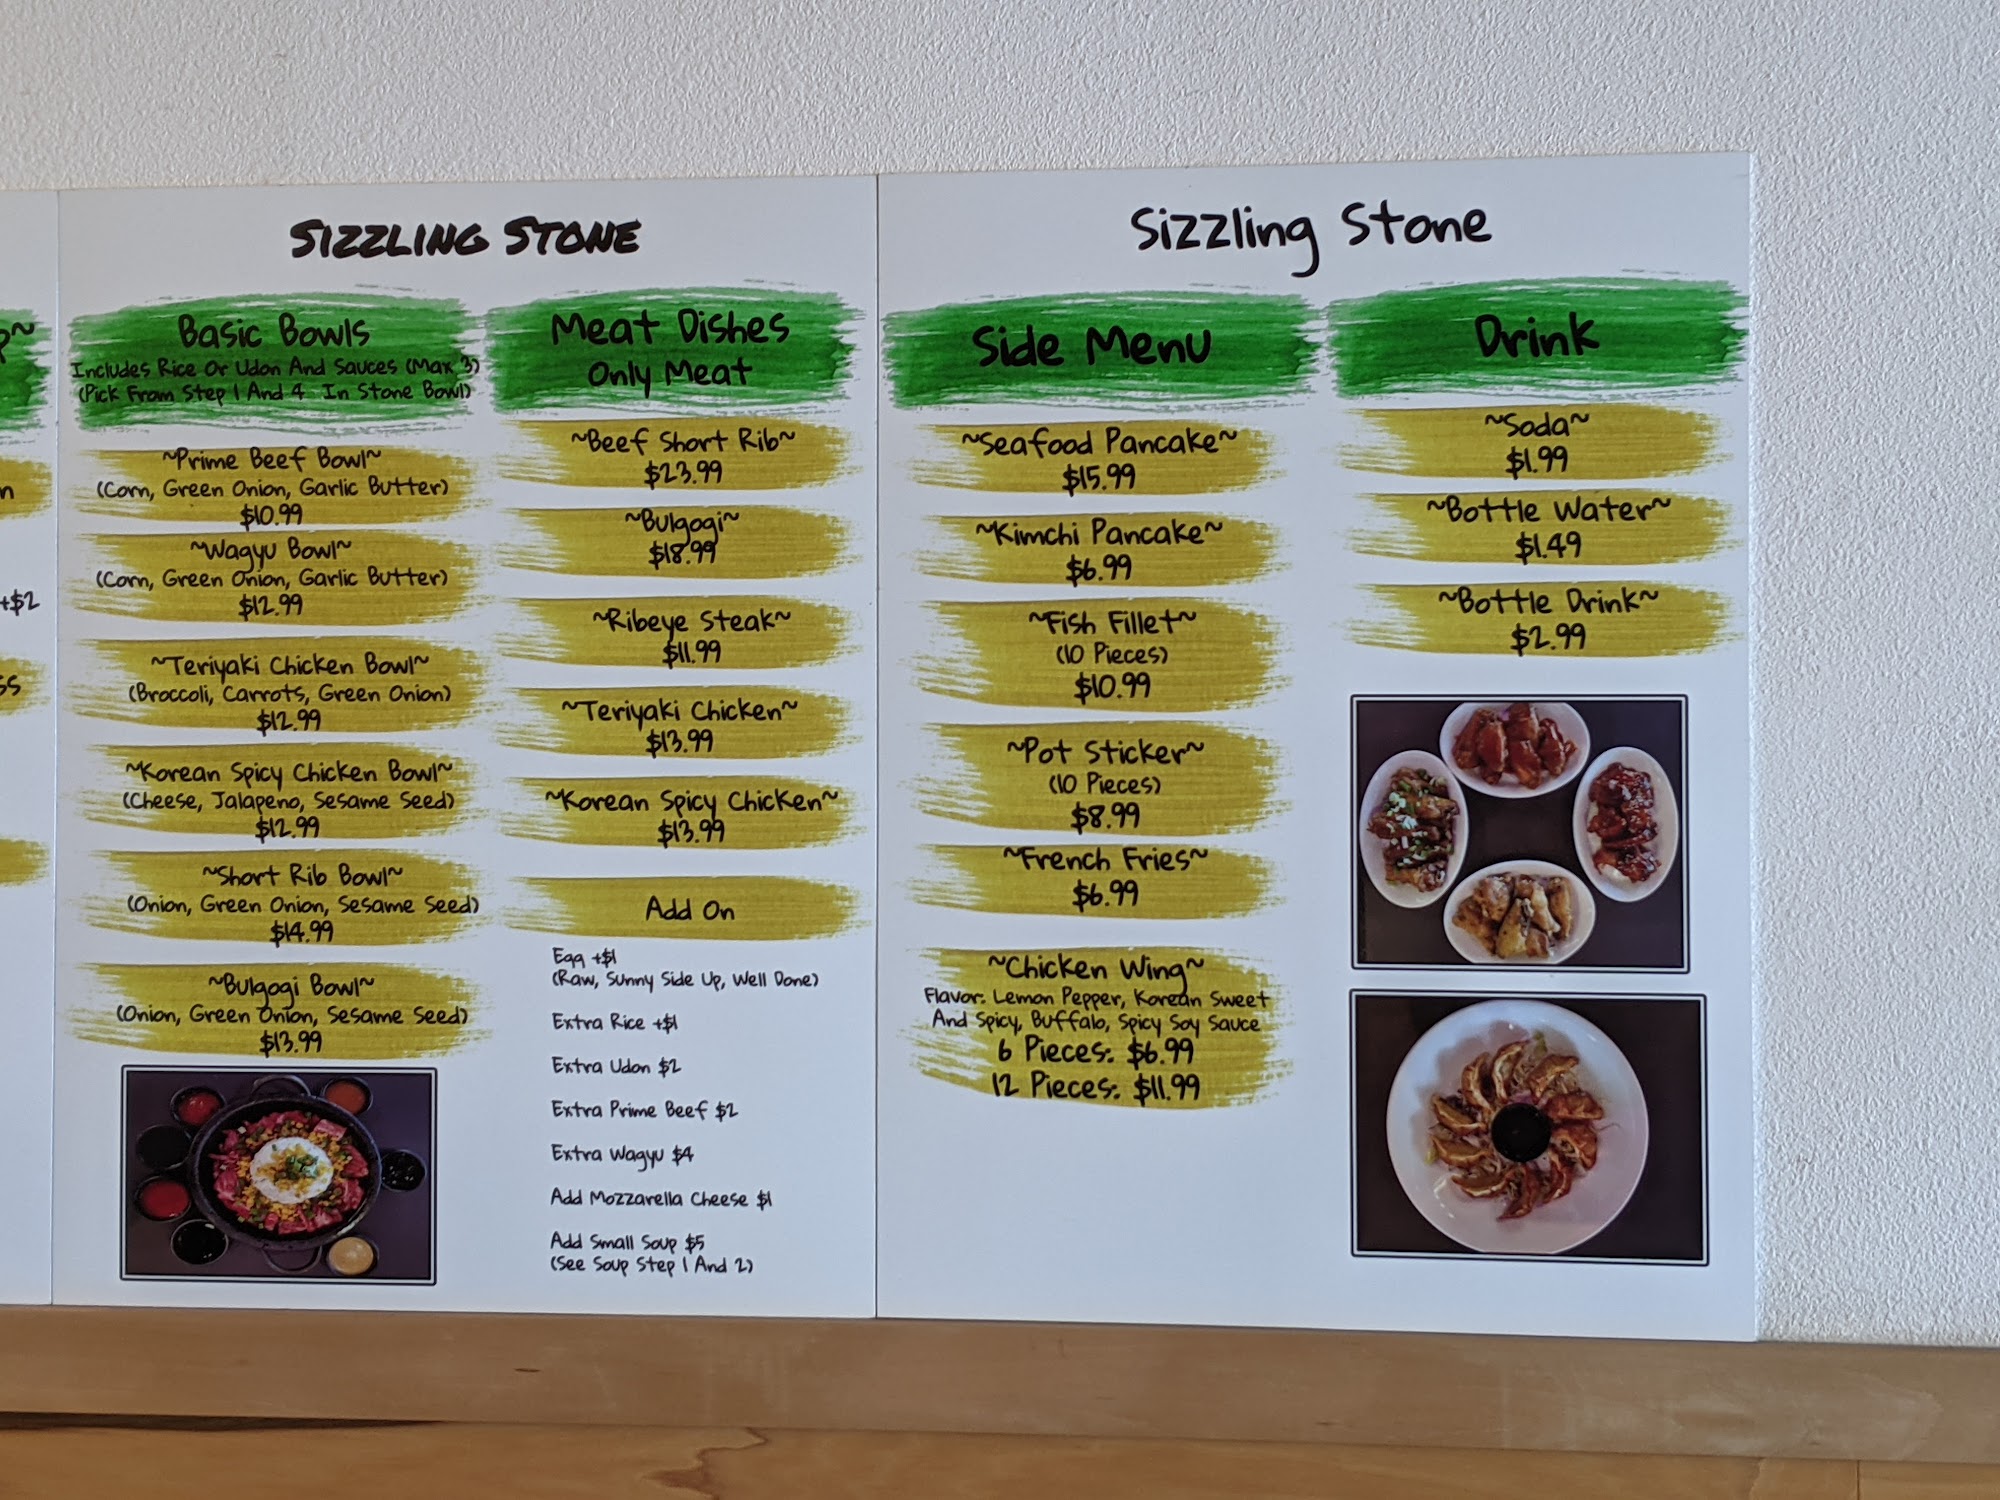 +$2
Sizzling Stone
Basic Bowls
Includes Rice Or Udon And Sauces (Max 3)
(Pick From Step 1 And 4 In Stone Bowl)
~Prime Beef Bowl~
(Corn, Green Onion, Garlic Butter)
$10.99
~Wagyu Bowl~
(Corn, Green Onion, Garlic Butter)
$12.99
~Teriyaki Chicken Bowl~
(Broccoli, Carrots, Green Onion)
$12.99
~Korean Spicy Chicken Bowl~
(Cheese, Jalapeno, Sesame Seed)
$12.99
~Short Rib Bowl~
(Onion, Green Onion, Sesame Seed)
$14.99
~Bulgogi Bowl~
(Onion, Green Onion, Sesame Seed)
$13.99
Meat Dishes
Only Meat
~Beef Short Rib~
$23.99
~Bulgogi~
$18.99
~Ribeye Steak~
$11.99
~Teriyaki Chicken~
$13.99
~Korean Spicy Chicken~
$13.99
Add On
Egg +$1
(Raw, Sunny Side Up, Well Done)
Extra Rice +$1
Extra Udon $2
Extra Prime Beef $2
Extra Wagyu $4
Add Mozzarella Cheese $1
Add Small Soup $5
(See Soup Step 1 And 2)
Sizzling Stone
Side Menu
~Seafood Pancake~
$15.99
~Kimchi Pancake~
$6.99
~Fish Fillet~
(10 Pieces)
$10.99
~Pot Sticker~
(10 Pieces)
$8.99
~French Fries~
$6.99
~Chicken Wing~
Flavor: Lemon Pepper, Korean Sweet
And Spicy, Buffalo, Spicy Soy Sauce
6 Pieces: $6.99
12 Pieces: $11.99
Drink
~Soda~
$1.99
~Bottle Water~
$1.49
~Bottle Drink~
$2.99